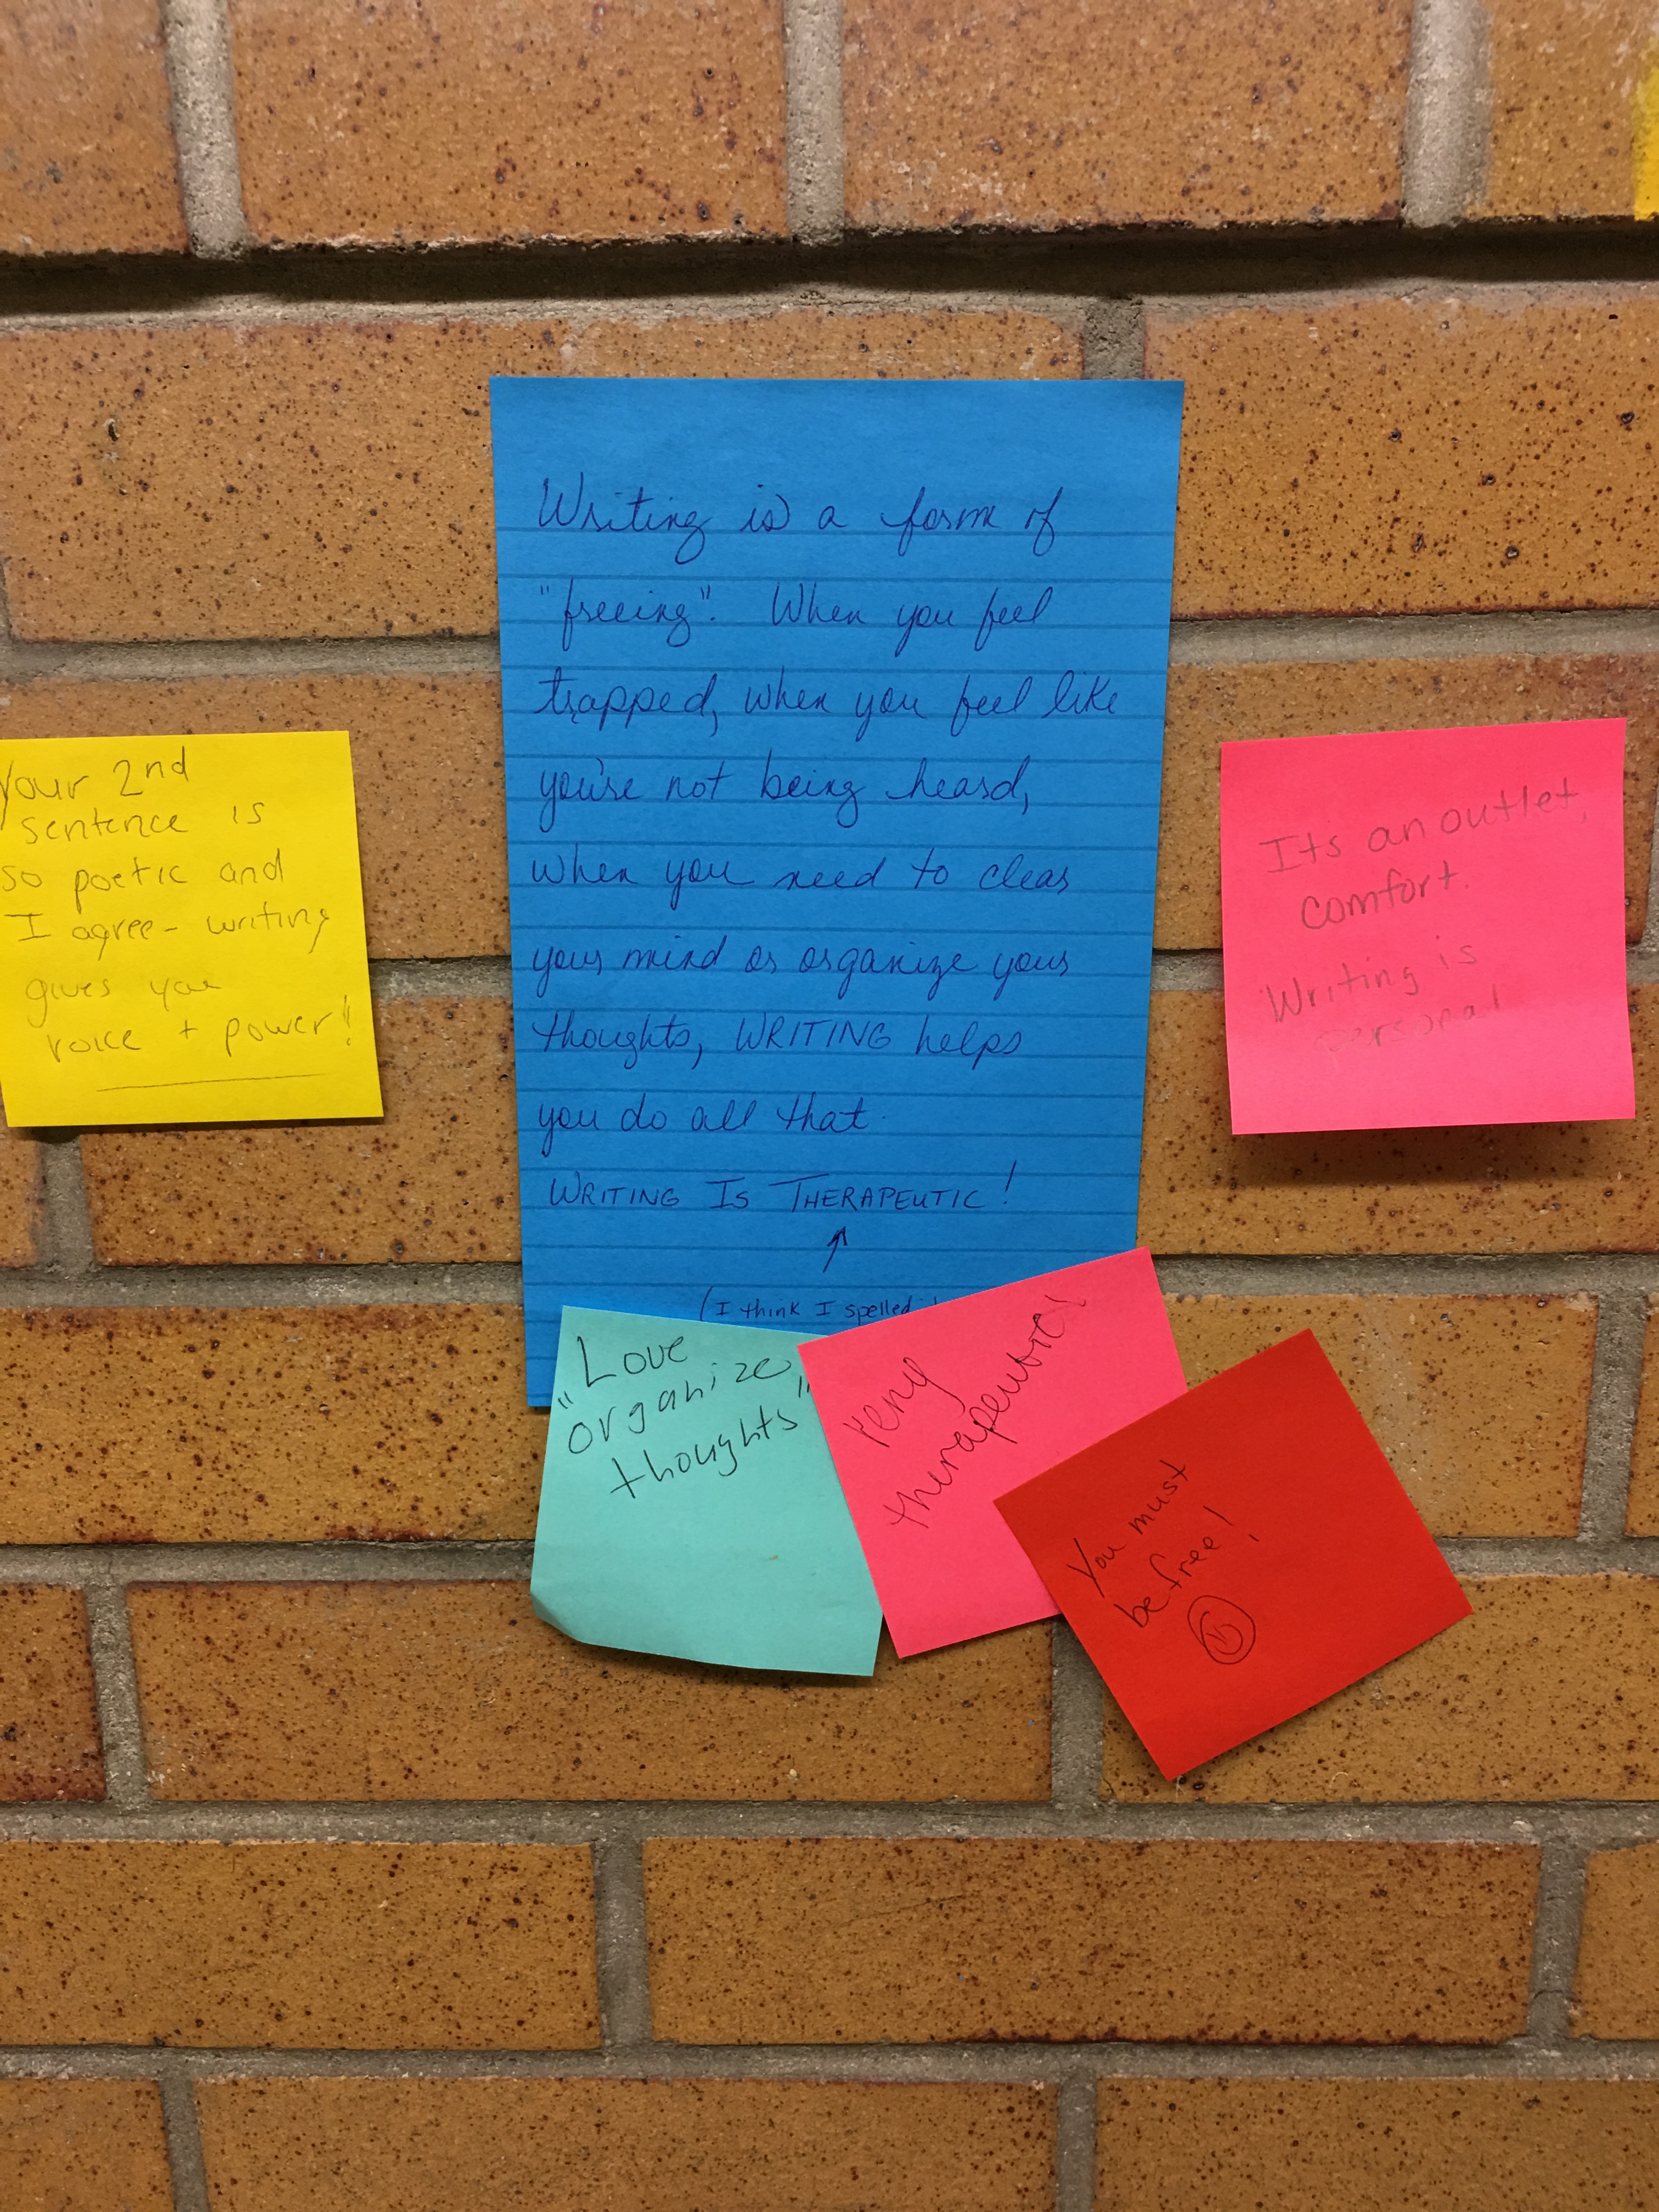 Writing is a form of
"freeing". When you feel
trapped, when you feel like
you're not being heard,
when you need to clear
your mind or organize your
thoughts, WRITING helps
you do all that.
WRITING IS THERAPEUTIC!
(I think I spelled
Your 2nd
sentence is
so poetic and
I agree - writing
gives you
voice + power!
Its an outlet,
comfort.
Writing is
personal
Love
"organize
thoughts"
Very
therapeutic!
You must
be free!